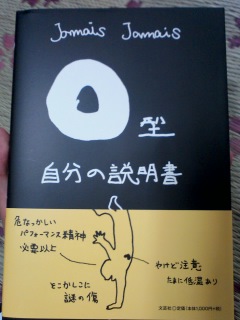 Jamais Jamais
O型
自分の説明書
危なっかしい
パフォーマンス精神
必要以上
やけど注意
たまに低温あり
とこかしこに
謎の傷
文芸社
定価(本体1,000円+税)